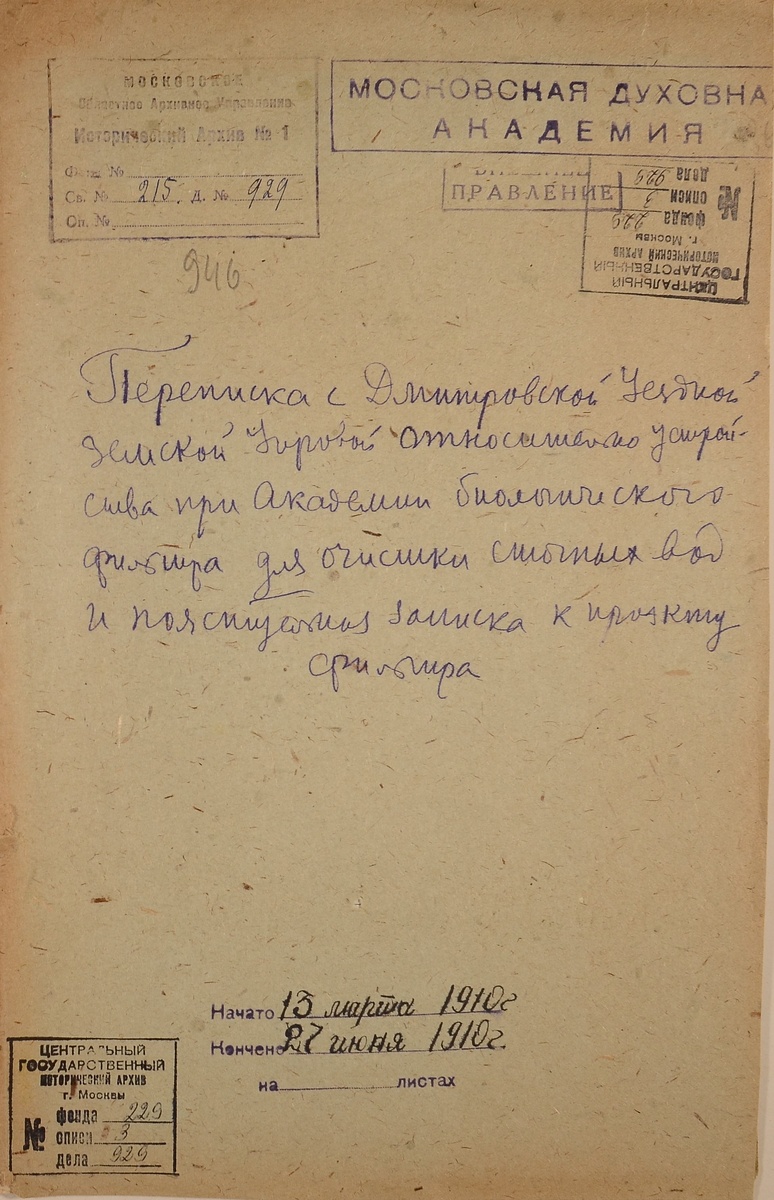 МОСКОВСКОЕ
Областное Архивное Управление
Исторический Архив № 1
Фонд №
Св. № 215. Д. № 929
Оп. №
МОСКОВСКАЯ ДУХОВНА
АКАДЕМИЯ
ПРАВЛЕНИЕ
ЦЕНТРАЛЬНЫЙ
ГОСУДАРСТВЕННЫЙ
ИСТОРИЧЕСКИЙ АРХИВ
г. Москвы
№ фонда 229
описи 3
дела 929
946
Переписка с Дмитровской Уездной
Земской Управой относительно устрой-
ства при Академии биологического
фильтра для очистки сточных вод
и пояснительная записка к проекту
фильтра
Начато 13 марта 1910 г
Кончено 27 июня 1910 г.
на листах
ЦЕНТРАЛЬНЫЙ
ГОСУДАРСТВЕННЫЙ
ИСТОРИЧЕСКИЙ АРХИВ
г. Москвы
№ фонда 229
описи 3
дела 929